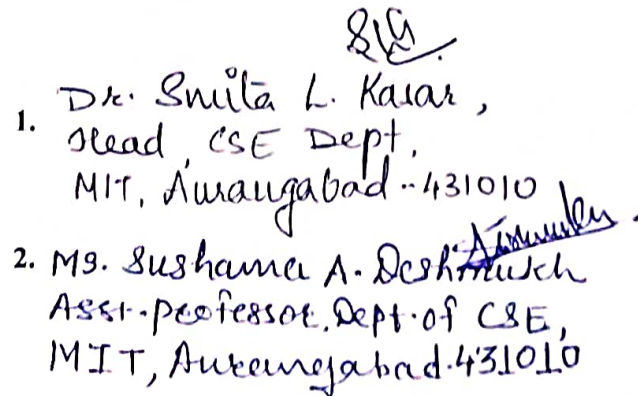 1. Dr. Smita L. Kasar,
Head, CSE Dept,
MIT, Aurangabad - 431010
2. Ms. Sushama A. Deshmukh
Asst. professor, Dept. of CSE,
MIT, Aurangabad. 431010